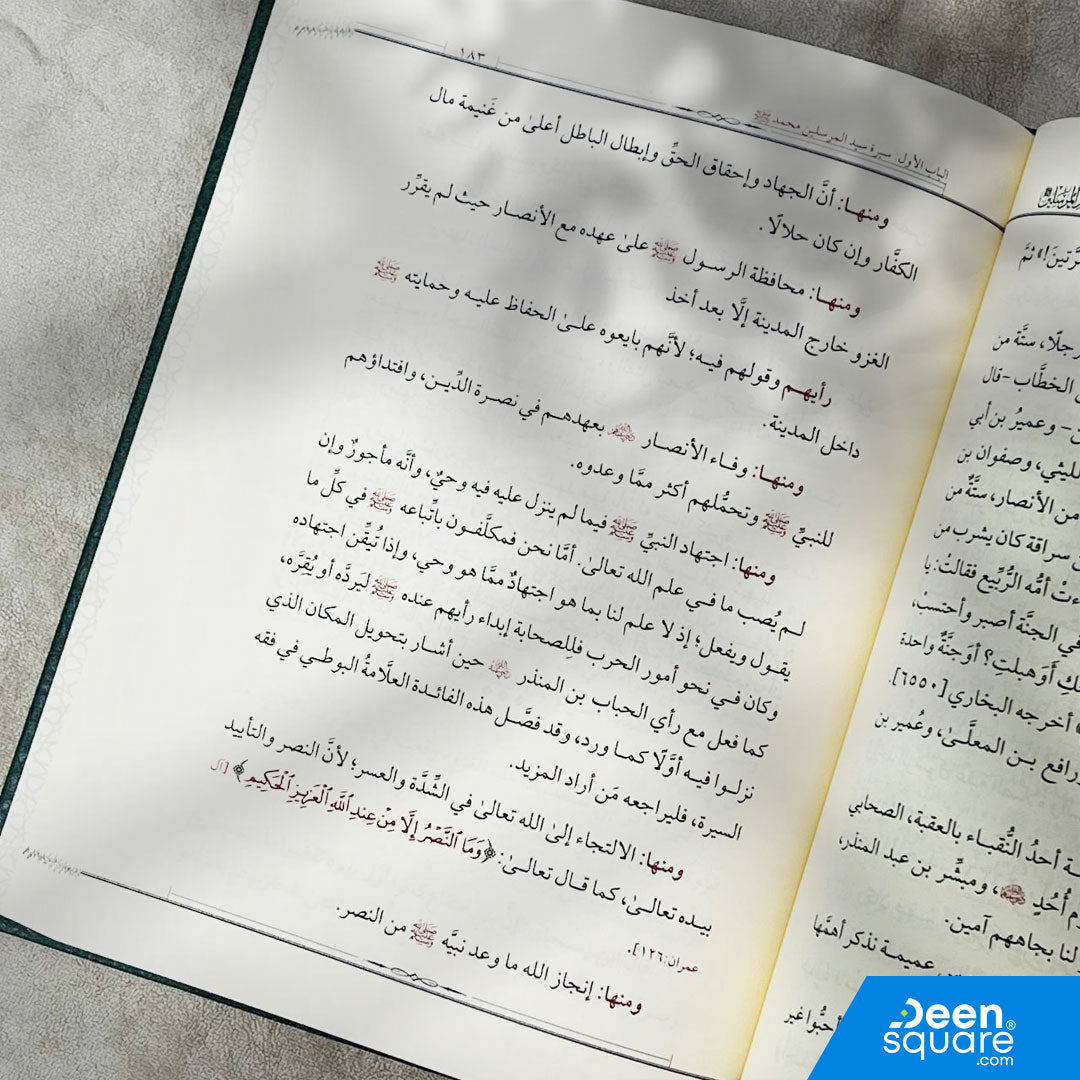 رَّتينَ!» ثمَّ
رجلًا، ستَّة من
الخطَّاب -قال
- وعميرُ بن أبي
لليثي، وصفوان بن
من الأنصار، ستَّةٌ من
سراقة كان يشرب من
أمُّه الرُّبِّيع فقالتْ: يا
في الجنَّة أصبر وأحتسبْ،
أَوَهبلتِ؟ أوَجنَّةٌ واحدة
أخرجه البخاري [٦٥٥٠].
رافع بن المعلَّىٰ، وعُمير بن
أحدُ النُّقباء بالعقبة، الصحابي
أُحُدٍ، ومبشِّر بن عبد المنذر،
لنا بجاههم آمين.
عميمة نذكر أهمَّها
أحبُّوا غير
الباب الأول: سيرة سيد المرسلين محمد ﷺ ١٨٣
ومنها: أنَّ الجهاد وإحقاق الحقِّ وإبطال الباطل أعلىٰ من غَنيمة مال
الكفَّار وإن كان حلالًا.
ومنها: محافظة الرسول ﷺ علىٰ عهده مع الأنصار حيث لم يقرِّر
الغزو خارج المدينة إلَّا بعد أخذ
رأيهم وقولهم فيه؛ لأنَّهم بايعوه علىٰ الحفاظ عليه وحمايته ﷺ
داخل المدينة.
ومنها: وفاء الأنصار بعهدهم في نصرة الدِّين، وافتداؤهم
للنبيِّ ﷺ وتحمُّلهم أكثر ممَّا وعدوه.
ومنها: اجتهاد النبيِّ ﷺ فيما لم ينزل عليه فيه وحيٌ، وأنَّه مأجورٌ وإن
لم يُصب ما في علم الله تعالىٰ. أمَّا نحن فمكلَّفون باتِّباعه ﷺ في كلِّ ما
يقول ويفعل؛ إذ لا علم لنا بما هو اجتهادٌ ممَّا هو وحي، وإذا تُيقِّن اجتهاده
وكان في نحو أمور الحرب فللِصحابة إبداء رأيهم عنده ﷺ لَيردَّه أو يُقِرَّه،
كما فعل مع رأي الحباب بن المنذر حين أشار بتحويل المكان الذي
نزلوا فيه أوَّلًا كما ورد، وقد فصَّل هذه الفائدة العلَّامةُ البوطي في فقه
السيرة، فليراجعه مَن أراد المزيد.
ومنها: الالتجاء إلىٰ الله تعالىٰ في الشِّدَّة والعسر؛ لأنَّ النصر والتأييد
بيده تعالىٰ، كما قال تعالىٰ: ﴿وَمَا ٱلنَّصْرُ إِلَّا مِنْ عِندِ ٱللَّهِ ٱلْعَزِيزِ ٱلْحَكِيمِ﴾ [آل
عمران:١٢٦].
ومنها: إنجاز الله ما وعد نبيَّه ﷺ من النصر.
Deen
square®
.com